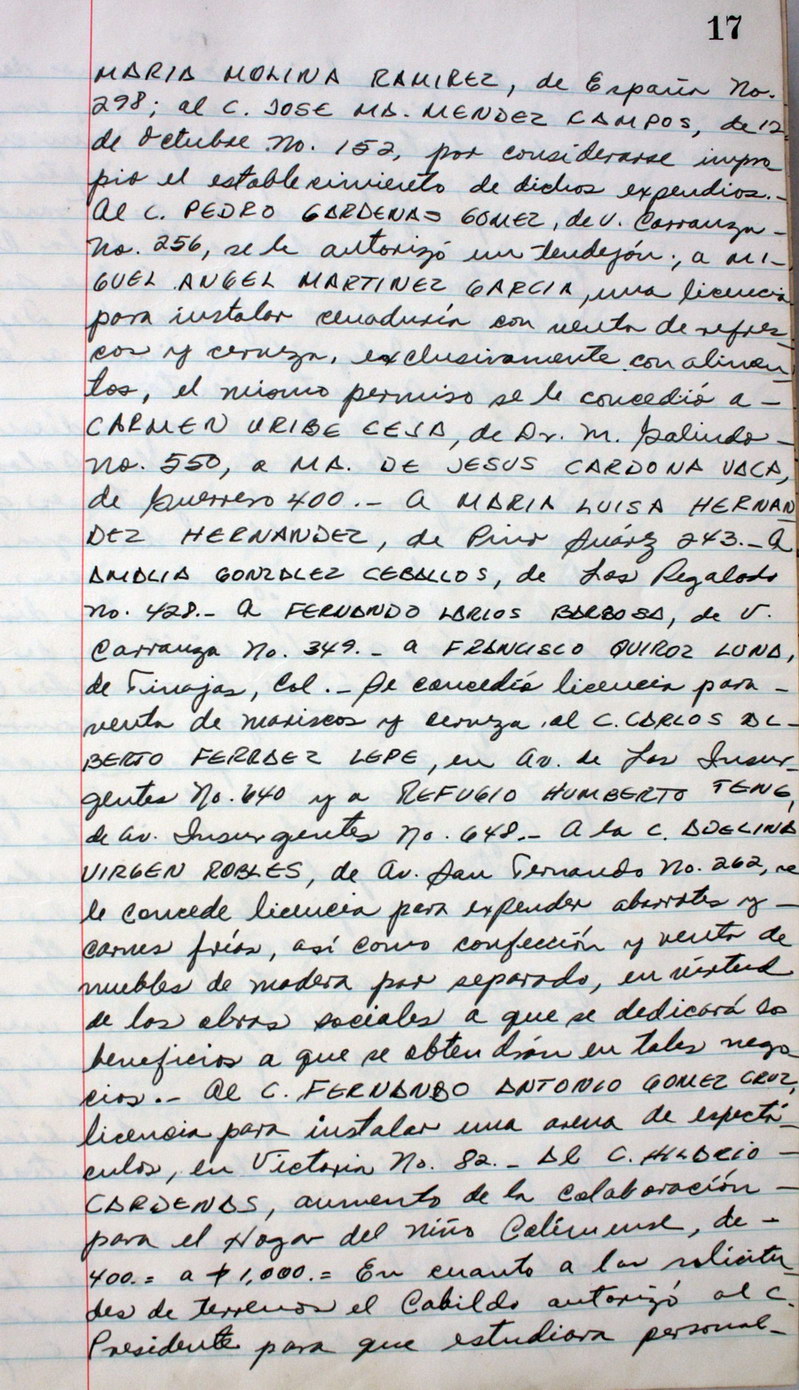 17
MARIA MOLINA RAMIREZ, de España No.
298; al C. JOSE MA. MENDEZ CAMPOS, de 12
de Octubre No. 152, por considerarse impro
pio el establecimiento de dichos expendios.-
Al C. PEDRO CARDENAS GOMEZ, de V. Carranza -
No. 256, se le autorizó un tendejón; a MI-
GUEL ANGEL MARTINEZ GARCIA, una licencia
para instalar cenaduría con venta de refres
cos y cerveza, exclusivamente con alimen
tos, el mismo permiso se le concedió a -
CARMEN URIBE CEJA, de Dr. M. Galindo -
No. 550, a MA. DE JESUS CARDONA VACA,
de Guerrero 400.- A MARIA LUISA HERNAN
DEZ HERNANDEZ, de Pino Suárez 243.- A
AMALIA GONZALEZ CEBALLOS, de Los Regalado
No. 428.- A FERNANDO LARIOS BARBOSA, de V.
Carranza No. 349.- a FRANCISCO QUIROZ LUNA,
de Tinajas, Col.- Se concedió licencia para -
venta de mariscos y cerveza al C. CARLOS AL-
BERTO FERRAEZ LEPE, en Av. de Los Insur-
gentes No. 640 y a REFUGIO HUMBERTO TENE,
de Av. Insurgentes No. 648.- A la C. ADELINA
VIRGEN ROBLES, de Av. San Fernando No. 262, se
le concede licencia para expender abarrotes y -
carnes frías, así como confección y venta de
muebles de madera por separado, en virtud
de las obras sociales a que se dedicará los
beneficios a que se obtendrán en tales nego
cios.- Al C. FERNANDO ANTONIO GOMEZ CRUZ,
licencia para instalar una arena de espectá-
culos, en Victoria No. 82.- Al C. HILARIO -
CARDENAS, aumento de la colaboración -
para el Hogar del Niño Colimense, de -
400.= a $1,000.= En cuanto a las solicitu
des de terrenos el Cabildo autorizó al C.
Presidente para que estudiara personal-